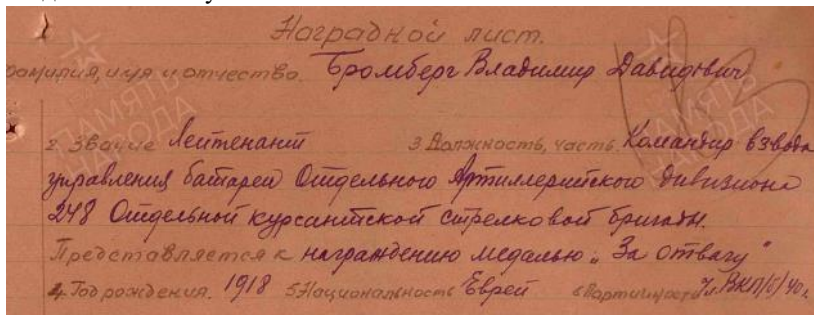 Наградной лист.
фамилия, имя и отчество. Бромберг Владимир Давидович
2 Звание Лейтенант 3 Должность, часть. Командир взвода
управления батареи Отдельного Артиллерийского дивизиона
248 Отдельной курсантской стрелковой бригады.
Представляется к награждению медалью „За отвагу"
4. Год рождения. 1918 5 Национальность Еврей 6 Партийность Чл. ВКП/б/ 40 г.
ПАМЯТЬ НАРОДА
ПАМЯТЬ НАРОДА